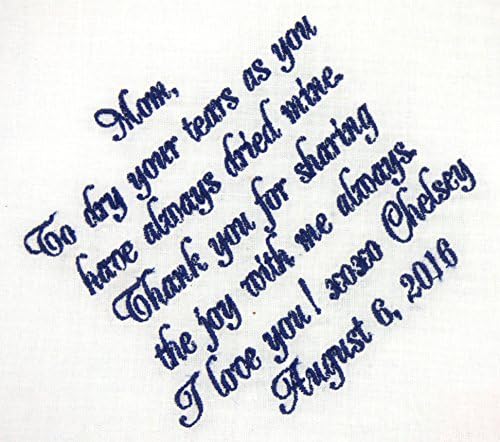 Mom,
To dry your tears as you
have always dried mine.
Thank you for sharing
the joy with me always.
I love you! xoxo Chelsey
August 6, 2016